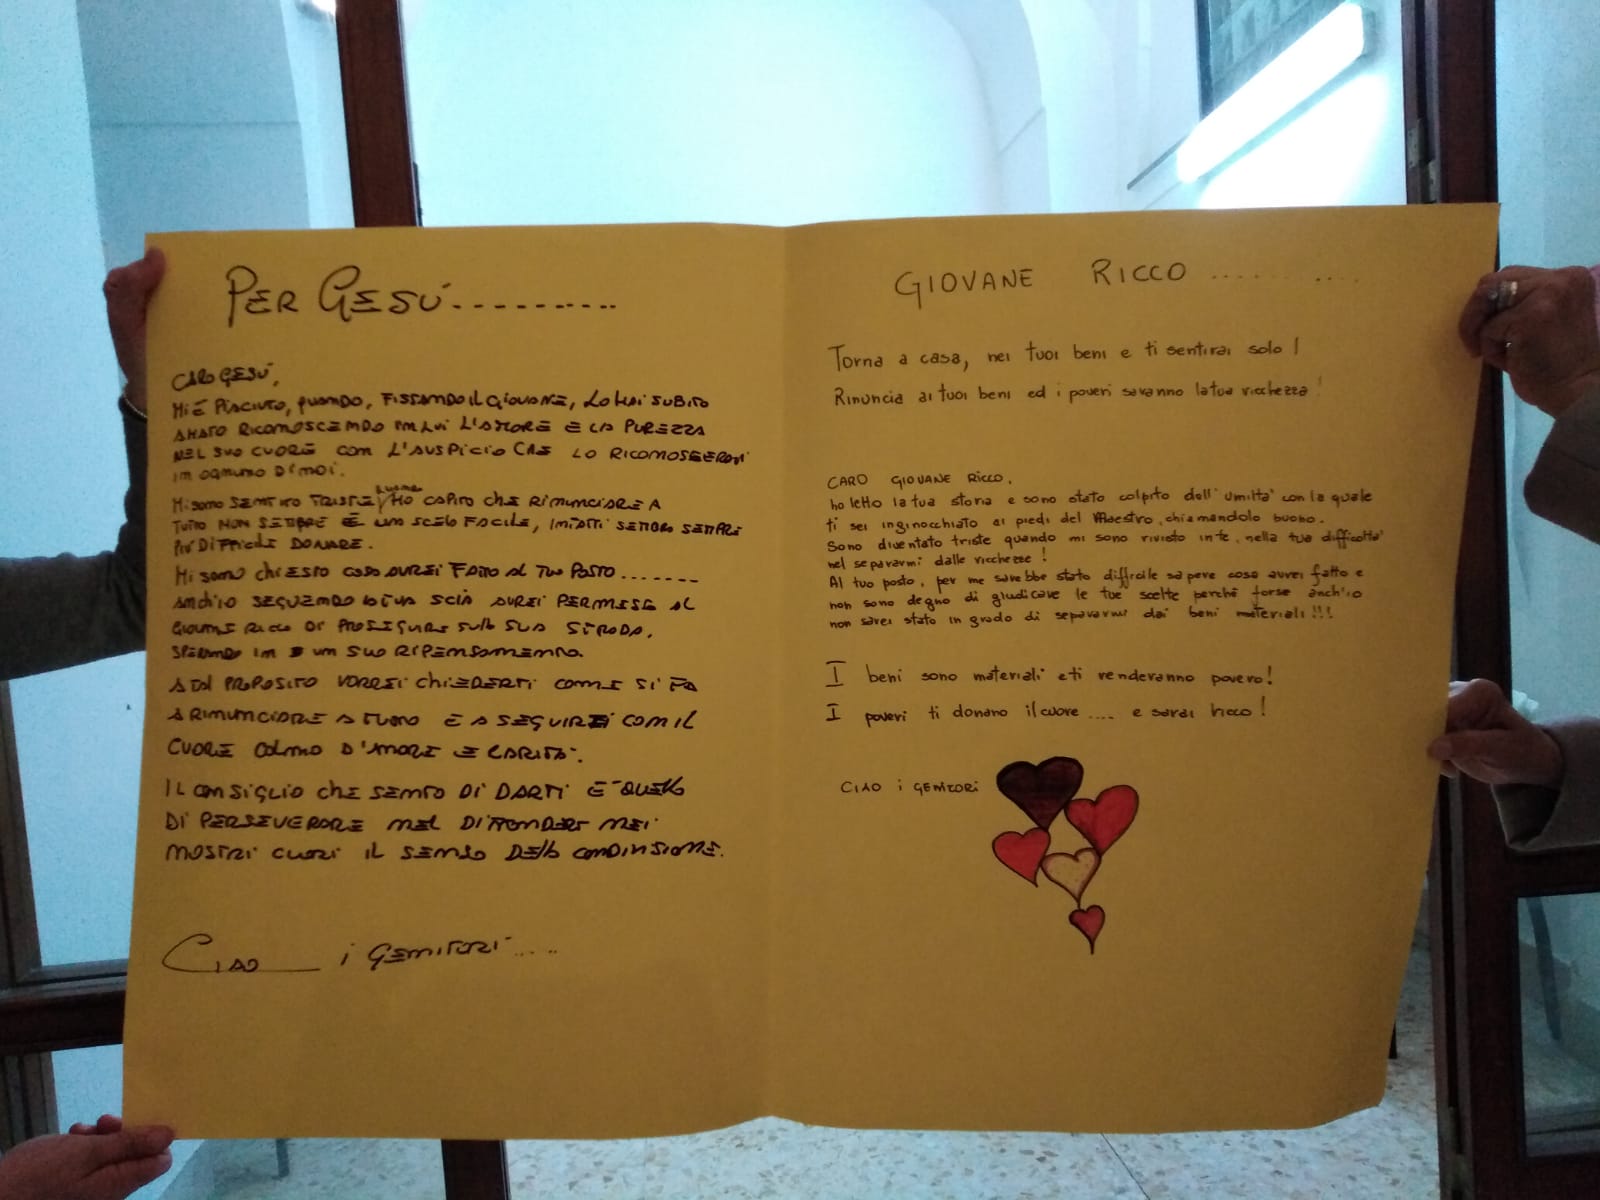 PER GESÚ..........
CARO GESÚ,
MI É PIACIUTO, QUANDO, FISSANDO IL GIOVANE, LO HAI SUBITO
AMATO RICONOSCENDO IN LUI L'AMORE E LA PUREZZA
NEL SUO CUORE CON L'AUSPICIO CHE LO RICONOSCERAI
IN OGNUNO DI NOI.
MI SONO SENTITO TRISTE HO CAPITO CHE RINUNCIARE A
TUTTO NON SEMPRE È UNA SCELTA FACILE, INFATTI SEMBRA SEMPRE
PIÚ DIFFICILE DONARE.
MI SONO CHIESTO COSA AVREI FATTO AL TUO POSTO.......
ANCH'IO SEGUENDO LA TUA SCIA AVREI PERMESSO AL
GIOVANE RICCO DI PROSEGUIRE SULLA SUA STRADA,
SPERANDO IN UN SUO RIPENSAMENTO.
A TAL PROPOSITO VORREI CHIEDERTI COME SI FA
A RINUNCIARE A TUTTO E A SEGUIRTI CON IL
CUORE COLMO D'AMORE E CARITÀ.
IL CONSIGLIO CHE SENTO DI DARTI È QUELLO
DI PERSEVERARE NEL DIFFONDERE NEI
NOSTRI CUORI IL SENSO DELLA CONDIVISIONE.
CIAO i GENITORI.....
GIOVANE RICCO ............
Torna a casa, nei tuoi beni e ti sentirai solo!
Rinuncia ai tuoi beni ed i poveri saranno la tua ricchezza!
CARO GIOVANE RICCO,
ho letto la tua storia e sono stato colpito dall'umiltà con la quale
ti sei inginocchiato ai piedi del Maestro, chiamandolo buono.
Sono diventato triste quando mi sono rivisto in te, nella tua difficoltà
nel separarmi dalle ricchezze!
Al tuo posto, per me sarebbe stato difficile sapere cosa avrei fatto e
non sono degno di giudicare le tue scelte perchè forse anch'io
non sarei stato in grado di separarmi dai beni materiali!!!
I beni sono materiali e ti renderanno povero!
I poveri ti donano il cuore .... e sarai ricco!
CIAO i GENITORI